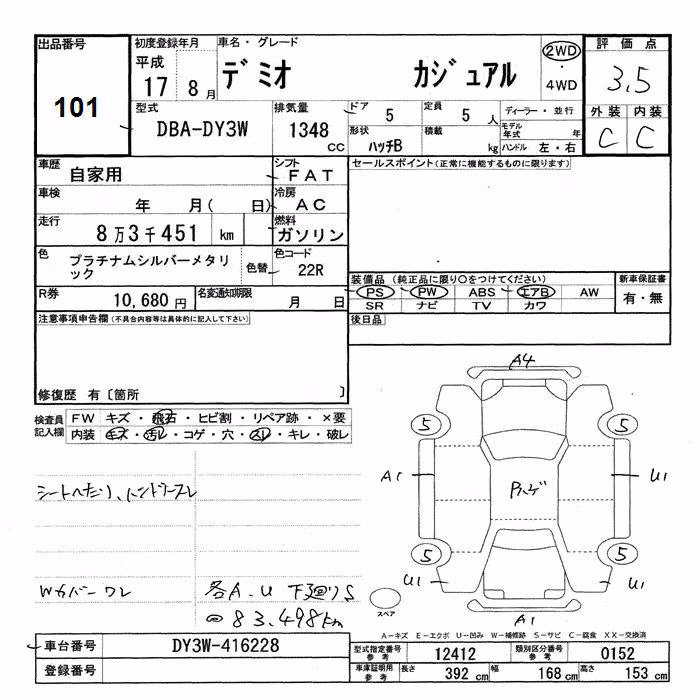 出品番号 初度登録年月 車名・グレード 評価点
101 平成 17年 8月 デミオ カジュアル 2WD・4WD 3.5
型式 排気量 ドア 5 定員 5人 ディーラー・並行 外装 内装
DBA-DY3W 1348cc 形状 ハッチB 積載 kg モデル年式 年 ハンドル 左・右 C C
車歴 自家用 シフト FAT セールスポイント(正常に機能するものに限ります)
車検 年 月( 日) 冷房 AC
走行 8万3千451 km 燃料 ガソリン
色 プラチナムシルバーメタリック 色替 色コード 22R
装備品 (純正品に限り○をつけてください) 新車保証書
R券 10,680円 名変通知期限 月 日 PS PW ABS エアB AW 有・無
SR ナビ TV カワ
注意事項申告欄(不具合内容等は具体的に記入して下さい) 後日品
修復歴 有〔箇所 〕
A4
検査員記入欄 FW キズ・飛石・ヒビ割・リペア跡・×要
内装 キズ・汚レ・コゲ・穴・スレ・キレ・破レ
5 5
シートヘタリ、ハンドルスレ A1 U1
5 5
Wカバーワレ 各A.U 下廻りS U1 U1
@83,498km スペア A1
A-キズ E-エクボ U-凹み W-補修跡 S-サビ C-腐食 XX-交換済
車台番号 DY3W-416228 型式指定番号参考 12412 類別区分番号参考 0152
登録番号 車庫証明用参考 長さ 392 cm 幅 168 cm 高さ 153 cm